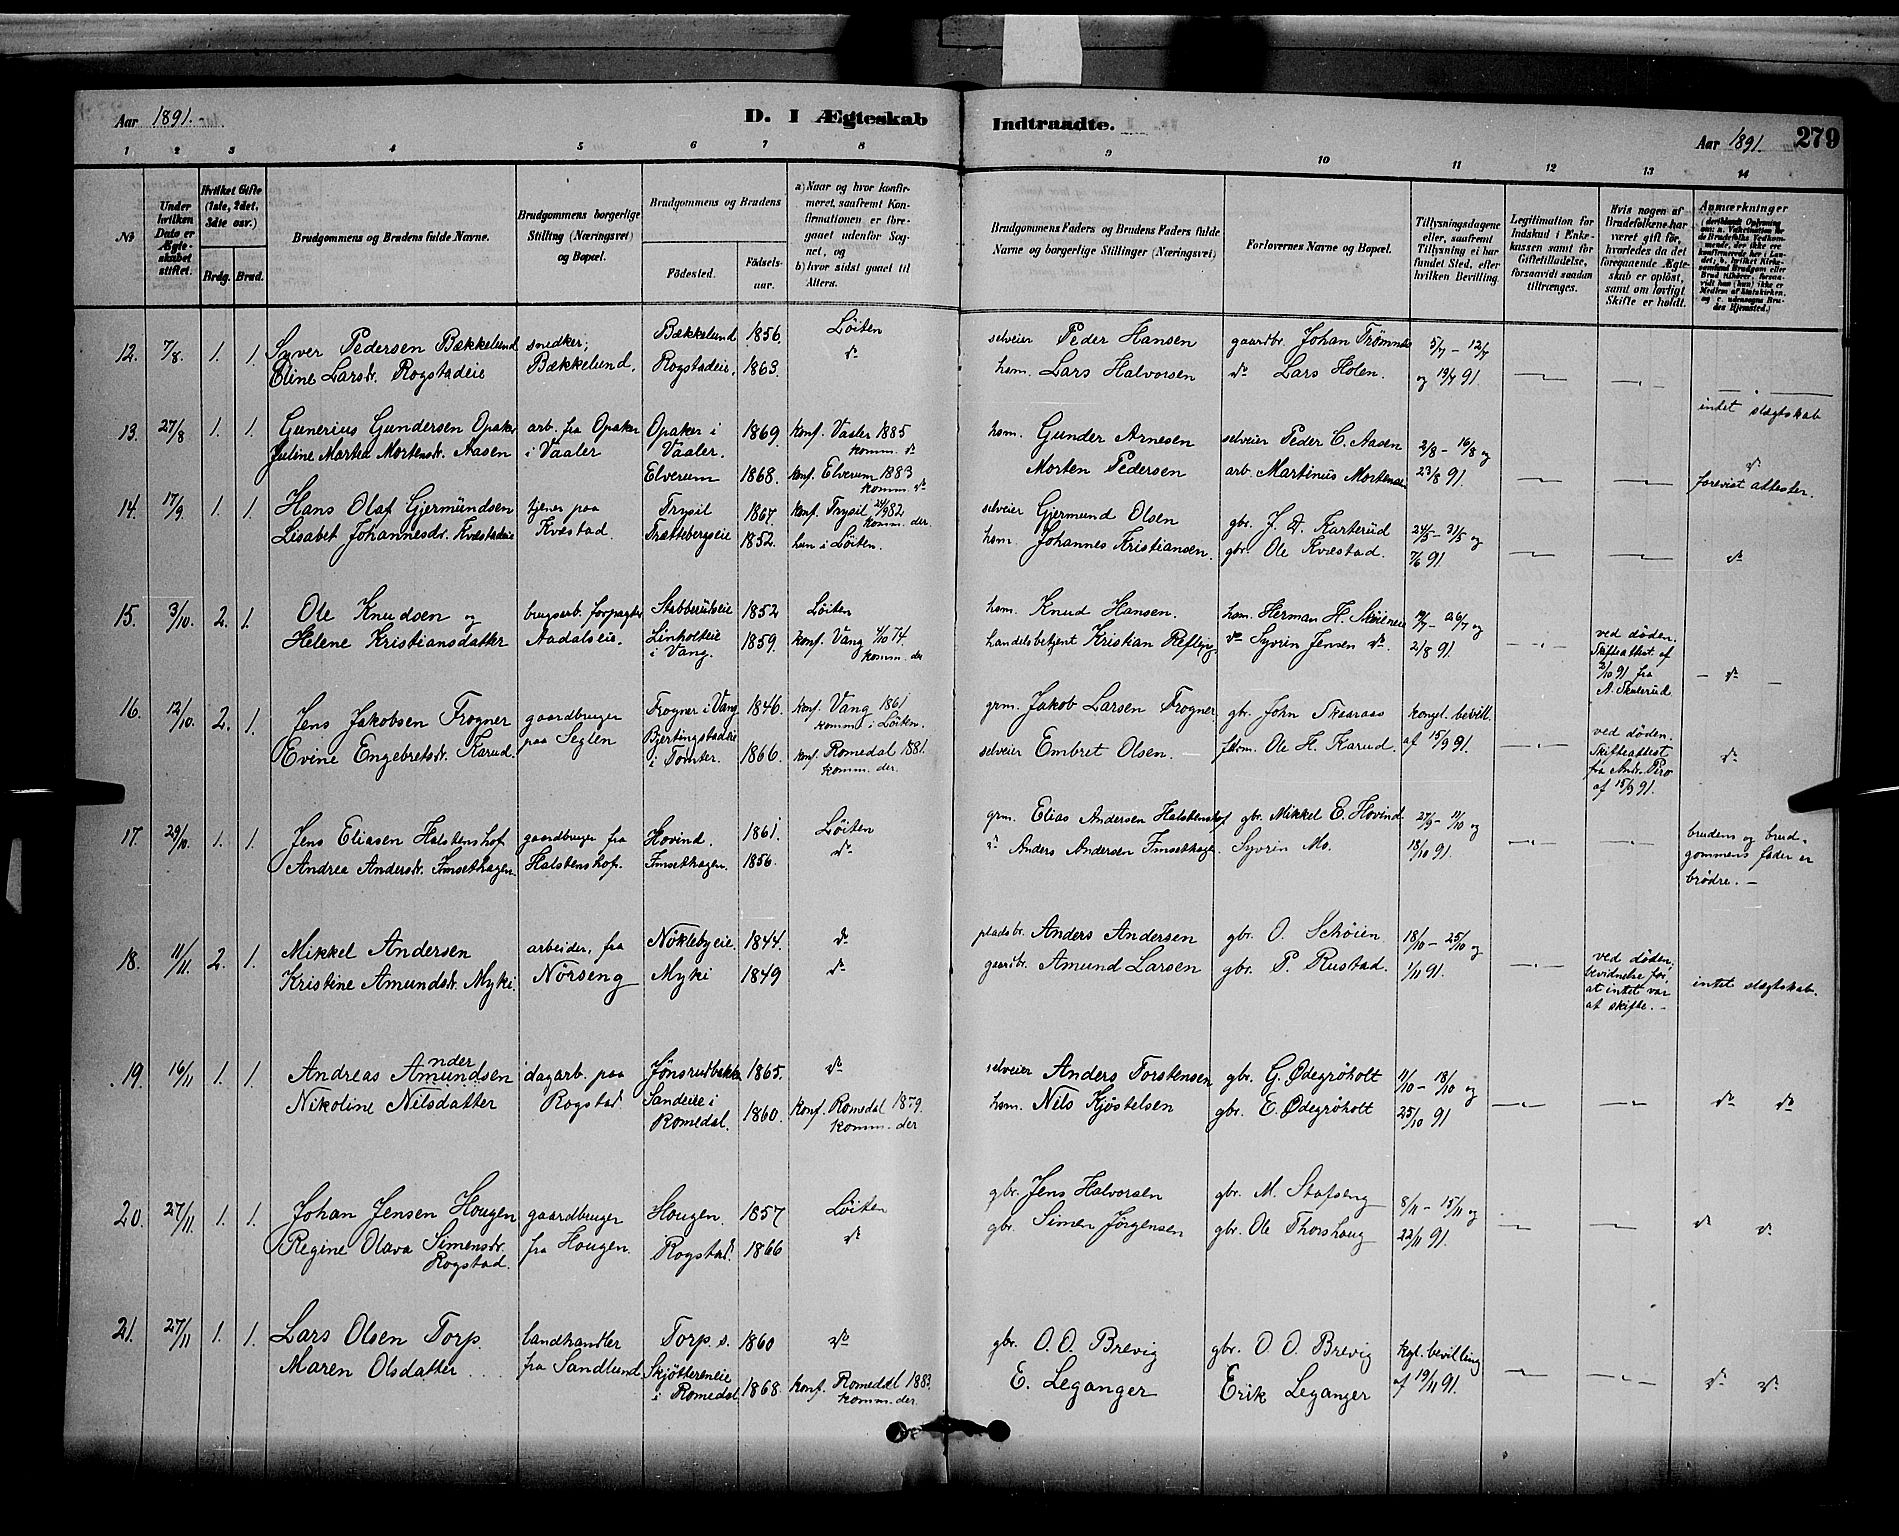 Aar 1891. D. I Ægteskab Indtraadte. Aar 1891. 279
1 2 3 4 5 6 7 8 9 10 11 12 13 14
No
Under hvilken Dato er Ægteskabet stiftet.
Hvilket Gifte (1ste, 2det, 3die osv.)
Brdg. Brud.
Brudgommens og Brudens fulde Navne.
Brudgommens borgerlige Stilling (Næringsvei) og Bopæl.
Brudgommens og Brudens
Fødested. Fødselsaar.
a) Naar og hvor konfirmeret, saafremt Konfirmationen er foregaaet udenfor Sognet, og
b) hvor sidst gaaet til Alters.
Brudgommens Faders og Brudens Faders fulde Navne og borgerlige Stillinger (Næringsvei)
Forlovernes Navne og Bopæl.
Tillysningsdagene eller, saafremt Tillysning ei har fundet Sted, efter hvilken Bevilling.
Legitimation for Indskud i Enkekassen samt for Giftetilladelse, forsaavidt saadan tiltrænges.
Hvis nogen af Brudefolkene har været gift før, hvorledes da det foregaaende Ægteskab er opløst, samt om lovligt Skifte er holdt.
Anmærkninger
12. 7/8. 1. 1. Syver Pedersen Bækkelund snedker, Bækkelund 1856. Løiten selveier Peder Hansen gaardbr. Johan Trømnes 5/7 - 12/7
Eline Larsdr. Rogstadeie Bækkelund. Rogstadeie. 1863. do hsm. Lars Halvorsen do Lars Holen. og 19/7 91.
intet slægtskab
13. 27/8 1. 1. Gunerius Gundersen Opaker arb. fra Opaker Opaker i 1869. konf. Vaaler 1885 hsm. Gunder Arnesen selveier Peder C. Aasen 2/8 - 16/8 og
Juline Martea Mortensdr. Aasen i Vaaler Vaaler. komm. do Morten Pedersen arb. Martinus Mortensen 23/8 91. do
Elverum 1868. konf. Elverum 1883 forevist attester.
komm. do
14. 17/9 1. 1. Hans Olaf Gjermundsen tjener paa Trysil 1867. konf. Trysil 24/9 82 selveier Gjermund Olsen gbr. J. D. Karterud 24/5 - 31/5 og
komm. der.
Lisabet Johannesdr. Kvæstadeie Kvæstad. Trættebergseie 1852. hun i Løiten. hsm. Johannes Kristiansen. gbr. Ole Kvæstad. 7/6 91. do
15. 3/10. 2. 1. Ole Knudsen og brugsarb. forpagter Stabberudseie 1852 Løiten hsm. Knud Hansen. hsm. Herman H. Skøieneie 19/7 - 26/7 og
Helene Kristiansdatter Aadalseie. Linholteie i Vang. 1859. konf. Vang 4/10 74. komm. der handelsbetjent Kristian Refling do Syvrin Jensen do. 2/8 91. ved døden. Skifteattest. af 2/10 91 fra A. Skulerud - do -
16. 12/10. 2. 1. Jens Jakobsen Frogner gaardbruger Frogner i Vang 1846. konf. Vang 1861 grm. Jakob Larsen Frogner gbr. John Skaaraas kongl. bevill.
komm. i Løiten.
Evine Engebretsdr. Karud. paa Seglen Bjertingstadeie i Tomter. 1866. konf. Romedal 1881. komm. der. selveier Embret Olsen. hsm. Ole H. Karud. af 15/9 91. ved døden. Skifteattest fra Andr. Piro af 15/9 91. do
17. 29/10. 1. 1. Jens Eliasen Halstenshof gaardbruger fra Hovind. 1861. Løiten grm. Elias Andersen Halstenshof gbr. Mikkel E. Hovind 27/9 - 11/10 og
Andrea Andersdr. Imsethagen. Halstenshof. Imsethagen. 1856. do Anders Andersen Imsethagen. Syvrin Mo. 18/10 91. brudens og brudgommens fader er brødre. -
18. 11/11. 2. 1. Mikkel Andersen arbeider, fra Nøklebyeie. 1844. do pladsbr. Anders Andersen gbr. O. Schøien 18/10 - 25/10 og
Kristine Amundsdr. Myki. Nørseng Myki 1849 do gaardbr. Amund Larsen gbr. P. Rustad. 1/11 91. ved døden, bevidnelse for, at intet var at skifte. - intet slægtskab.
19. 16/11 1. 1. Andreas Amundsen dagarb. paa Jønsrudbakken 1865. do selveier Anders Torstensen gbr. G. Ødegrøholt 11/10 - 18/10 og
nder
Nikoline Nilsdatter Rogstad Sandeie i Romedal. 1860. konf. Romedal 1879. komm. der hsm. Nils Kjøstelsen gbr. E. Ødegrøholt 25/10 91 do do
20. 27/11. 1. 1. Johan Jensen Hougen gaardbruger Hougen. 1857 Løiten gbr. Jens Halvorsen gbr. M. Stafseng 8/11 - 15/11 og
Regine Olava Simensdr. Rogstad. fra Hougen. Rogstad. 1866 do gbr. Simen Jørgensen gbr. Ole Thorshaug 22/11 91. do do.
21. 27/11 1. 1. Lars Olsen Torp. landhandler Torp. s. 1860 do gbr. O. O. Brevig gbr. O. O. Brevig kgl. bevilling
Maren Olsdatter ... fra Sandlund Skjøttereneie i Romedal 1868. konf. Romedal 1883. komm. der. E. Leganger Erik Leganger af 19/11 91. do do.